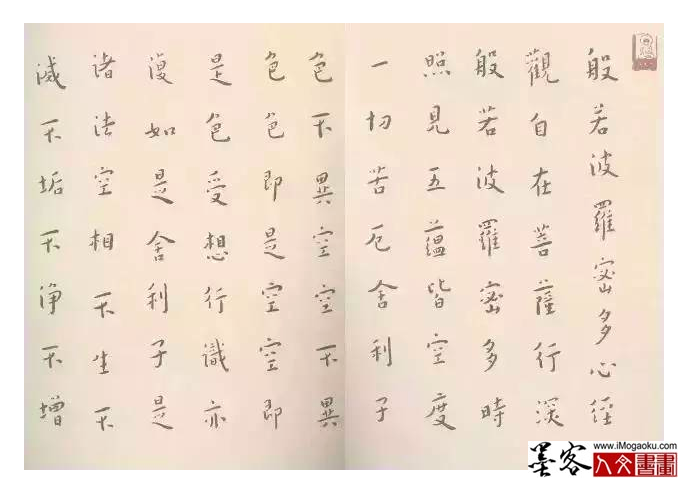 般若波羅蜜多心經
觀自在菩薩行深
般若波羅蜜多時
照見五蘊皆空度
一切苦厄舍利子
色不異空空不異
色色即是空空即
是色受想行識亦
復如是舍利子是
諸法空相不生不
滅不垢不淨不增
墨客
www.iMogaoku.com
人文書畫